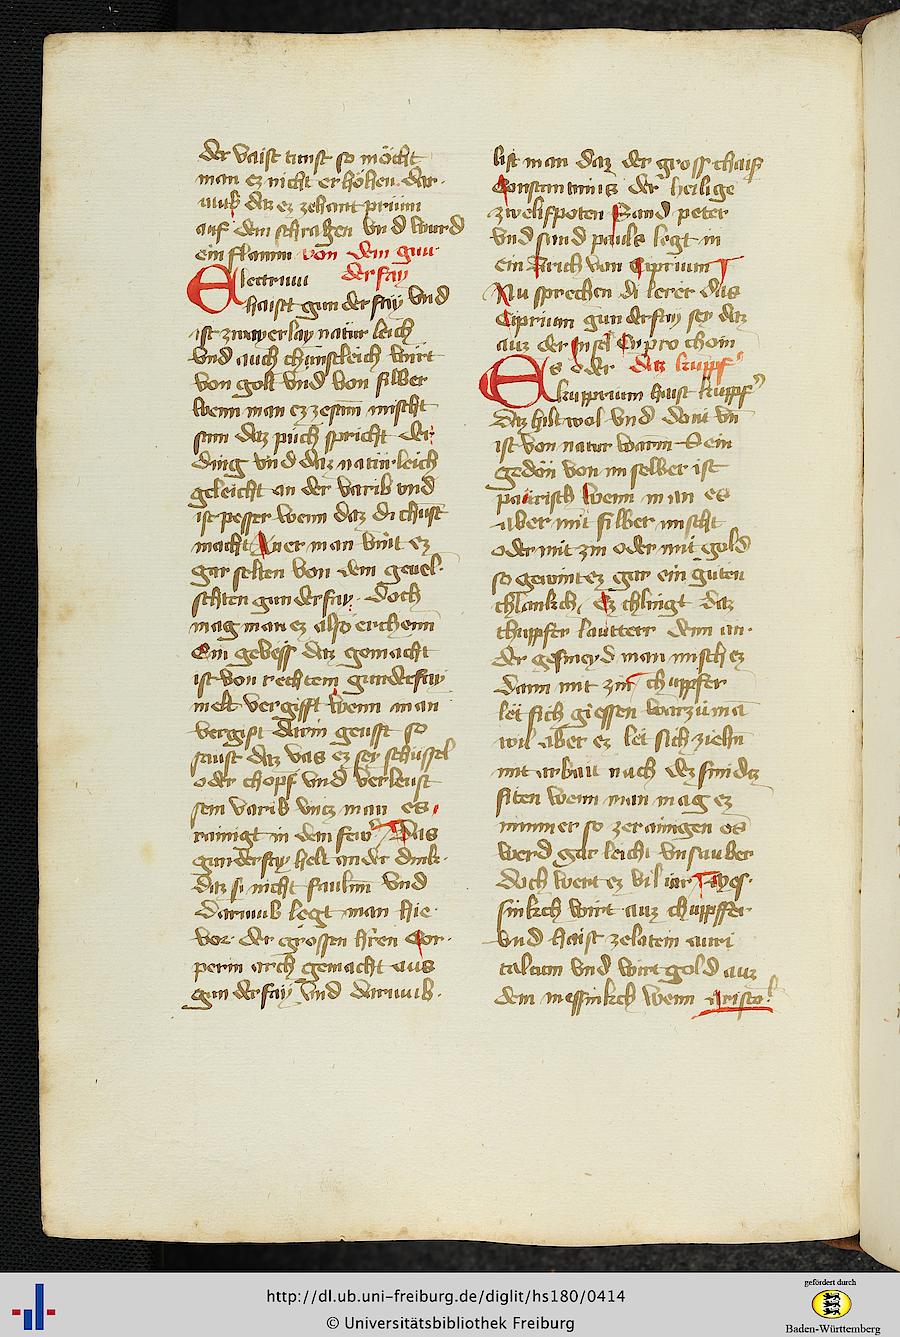 der vaist tunst so möcht
man ez nicht erhöhen dar·
umb daz ez zehant prunn
auf dem schragen vnd wurd
ein flamm von dem gun
Electrum derfay
haist gunderfay vnd
ist zwayerlay natürleich
vnd auch chunstleich wirt
von golt vnd von silber
wenn man ez zesam mischt
sam daz půch spricht der
ding vnd daz natürleich
geleicht an der varib vnd
ist pesser wenn daz di chust
macht Auer man vint ez
gar selten von dem geuel·
schten gunderfay· Doch
mag man ez also erchenn
Ein gevess daz gemacht
ist von rechtem gunderfay
melt vergifft wenn man
vergift darin geusst so
saust daz vas ez sey schüssel
oder chopf vnd verleust
sein varib vntz man es
rainigt in dem fewr Das
gunderfay helt ander dink·
daz si nicht faulnn vnd
Darumb legt man hie·
vor der grossen h'ren Cor·
perin arch gemacht aus
gunderfay vnd darumb·
list man daz der gross chais
Constantinus der heilige
zwelifpoten Sand peter
vnd sand pauls legt in
ein Arich von Ciprium
Nu sprechen di lerer das
Ciprium gunderfay sey daz
auz der Insel Cypro chom
Es oder daz kupf'
kupprium haist kupf'
Daz hilt wol vnd dont vn
ist von natur warm Sein
gedön von im selber ist
päurisch wenn man es
aber mit silber mischt
oder mit zin oder mit gold
so gewint ez gar ein guten
chlankch, Ez chlingt daz
chuppfer lautterr denn an·
der gesmeyd man misch ez
dann mit zin chuppfer
let sich giessen warzu mā
wil aber ez let sich ziehn
mit arbait nach dez smidz
siten wenn man mag ez
nimmer so zerainigen es
werd gar leicht vnsauber
doch wert ez vil iar Mes·
sinkch wirt auz chuppffer
vnd haist zelatein auri
calcum vnd wirt gold auz
dem messinkch wenn Aristo·
http://dl.ub.uni-freiburg.de/diglit/hs180/0414
© Universitätsbibliothek Freiburg
gefördert durch
Baden-Württemberg